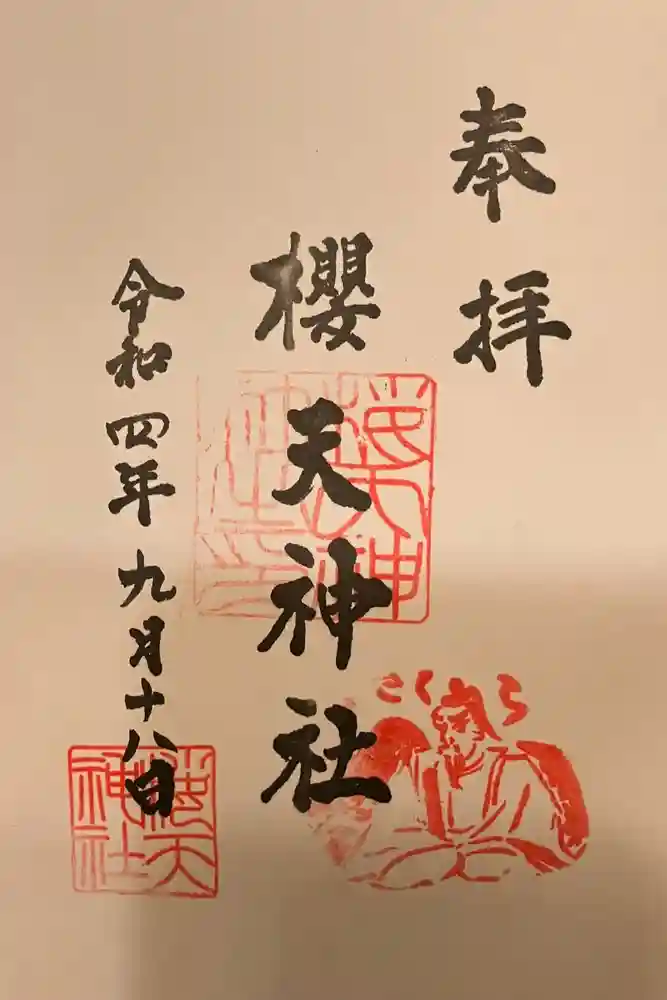 奉拝
櫻天神社
令和四年九月十八日
櫻天神社印
櫻天神社